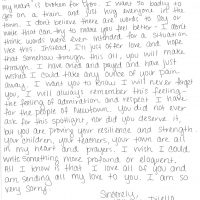 my heart is broken for you. I want so badly to
get on a train and hug everyone of the
town. I don't believe there are words to say or
write that can try to make you feel better - I don't
think words were even intended for a situation
like this. Instead, I'll just offer love and hope
that somehow through this all, you will make
through. I have cried and prayed and have just
wished I could take away ounce of your pain
away. I want you to know I will never forget
you, I will always remember this feeling -
the feeling of admiration and respect I have
for the people of Newtown. You did not ever
ask for this spotlight, nor did you deserve it,
but you are proving your resilience and strength.
Your children, your teachers, your town are all
in my heart and prayers. I wish I could
write something more profound or eloquent.
All I know is that I love all of you and
am sending all my love to you. I am so
very sorry.
Sincerely,